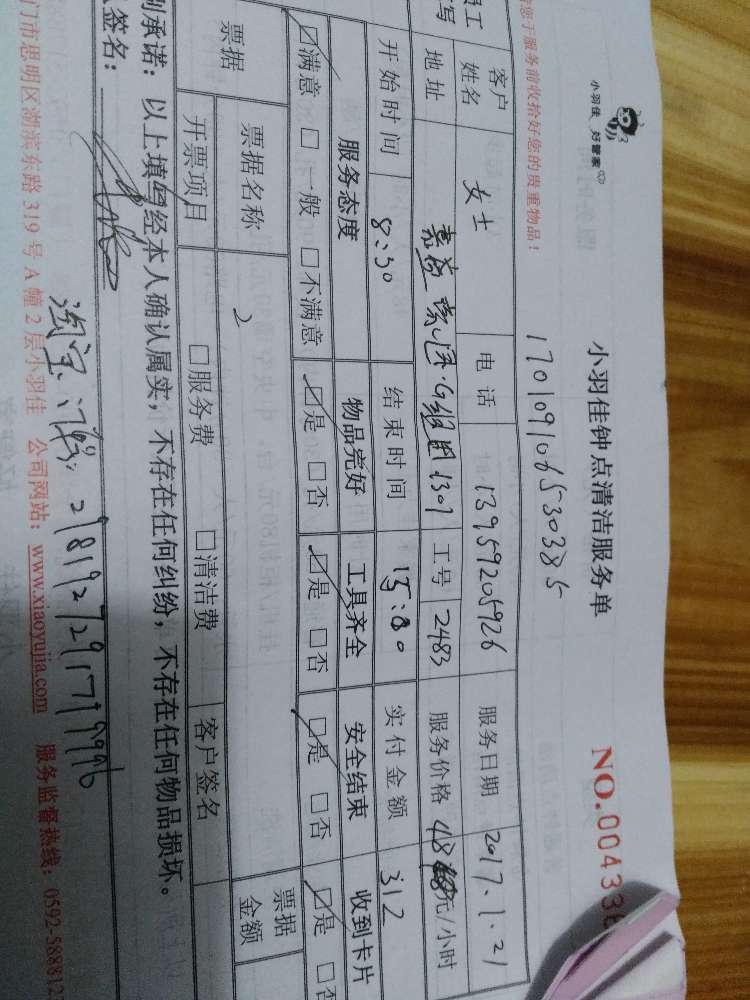 小羽佳 好管家
小羽佳钟点清洁服务单
NO.004338
您于服务前收拾好您的贵重物品!
17010910653 0385
员工 客户姓名 女士 电话 13959205926 服务日期 2017.1.21
写 地址 1301 工号 2483 服务价格 48元/小时
开始时间 8:30 结束时间 15:00 实付金额 312
服务态度 物品完好 工具齐全 安全结束 收到卡片
☑满意 □一般 □不满意 ☑是 □否 ☑是 □否 ☑是 □否 ☑是 □否
票据 票据名称 票据金额
开票项目 □服务费 □清洁费 客户签名
别承诺:以上填写经本人确认属实,不存在任何纠纷,不存在任何物品损坏。
签名:
淘宝订单:2981927291719996
门市思明区湖滨东路319号A幢2层小羽佳 公司网站:www.xiaoyujia.com 服务监督热线:0592-588812